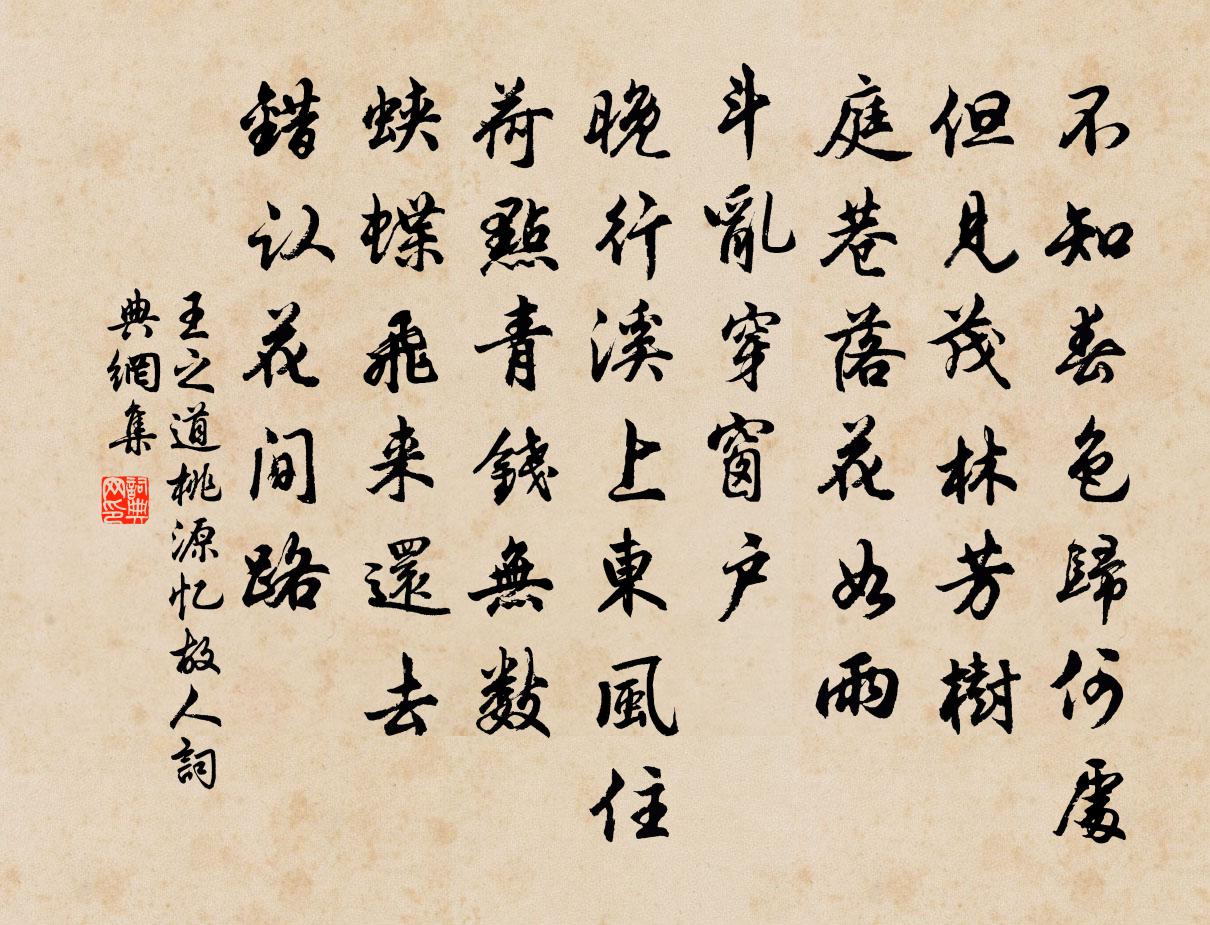 不知春色歸何處
但見茂林芳樹
庭巷落花如雨
斗亂穿窗户
晚行溪上東風住
荷點青錢無数
蛱蝶飛来還去
錯认花間路
王之道桃源忆故人詞
典網集
詞典网印